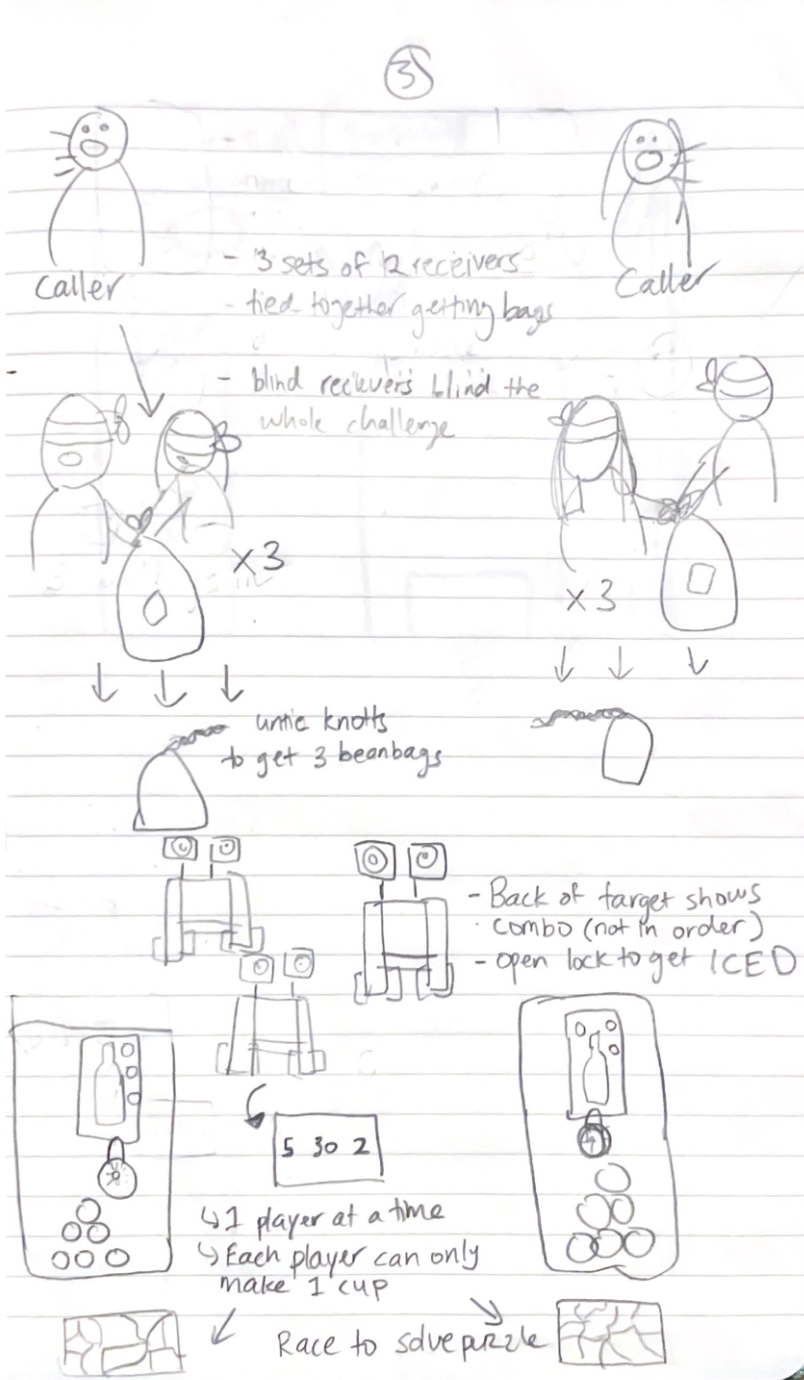 3
Caller
Caller
- 3 sets of 2 receivers
- tied together getting bags
- blind recievers blind the
whole challenge
x3
x3
untie knotts
to get 3 beanbags
- Back of target shows
combo (not in order)
- open lock to get ICED
5 30 2
↳ 1 player at a time
↳ Each player can only
make 1 cup
Race to solve puzzle